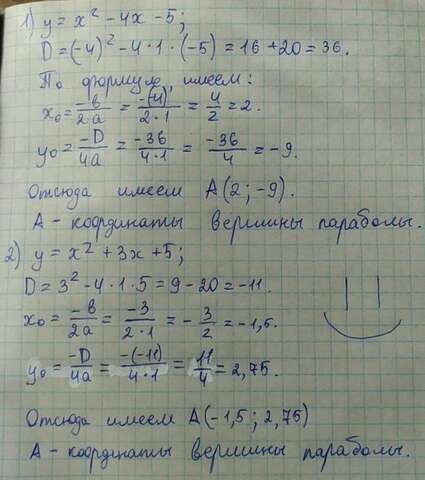 1) y = x² - 4x - 5;
D = (-4)² - 4·1·(-5) = 16 + 20 = 36.
По формуле имеем:
x₀ = -в/2a = -(-4)/2·1 = 4/2 = 2.
y₀ = -D/4a = -36/4·1 = -36/4 = -9.
Отсюда имеем A(2; -9).
A - координаты вершины параболы.
2) y = x² + 3x + 5;
D = 3² - 4·1·5 = 9 - 20 = -11.
x₀ = -в/2a = -3/2·1 = -3/2 = -1,5.
y₀ = -D/4a = -(-11)/4·1 = 11/4 = 2,75.
Отсюда имеем A(-1,5; 2,75)
A - координаты вершины параболы.